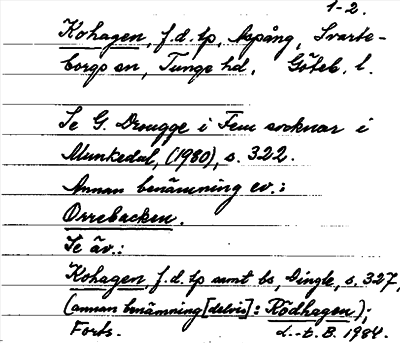 1-2.
Kohagen, f.d. tp, Aspång, Svarte-
borgs sn, Tunge hd, Göteb. l.
Se G. Drougge i Fem socknar i
Munkedal, (1980), s. 322.
Annan benämning ev.:
Orrebacken.
Se äv.:
Kohagen, f.d. tp samt bs, Dingle, s. 327,
(annan benämning [delvis]: Rödhagen);
Forts. d.-t. B. 1984.